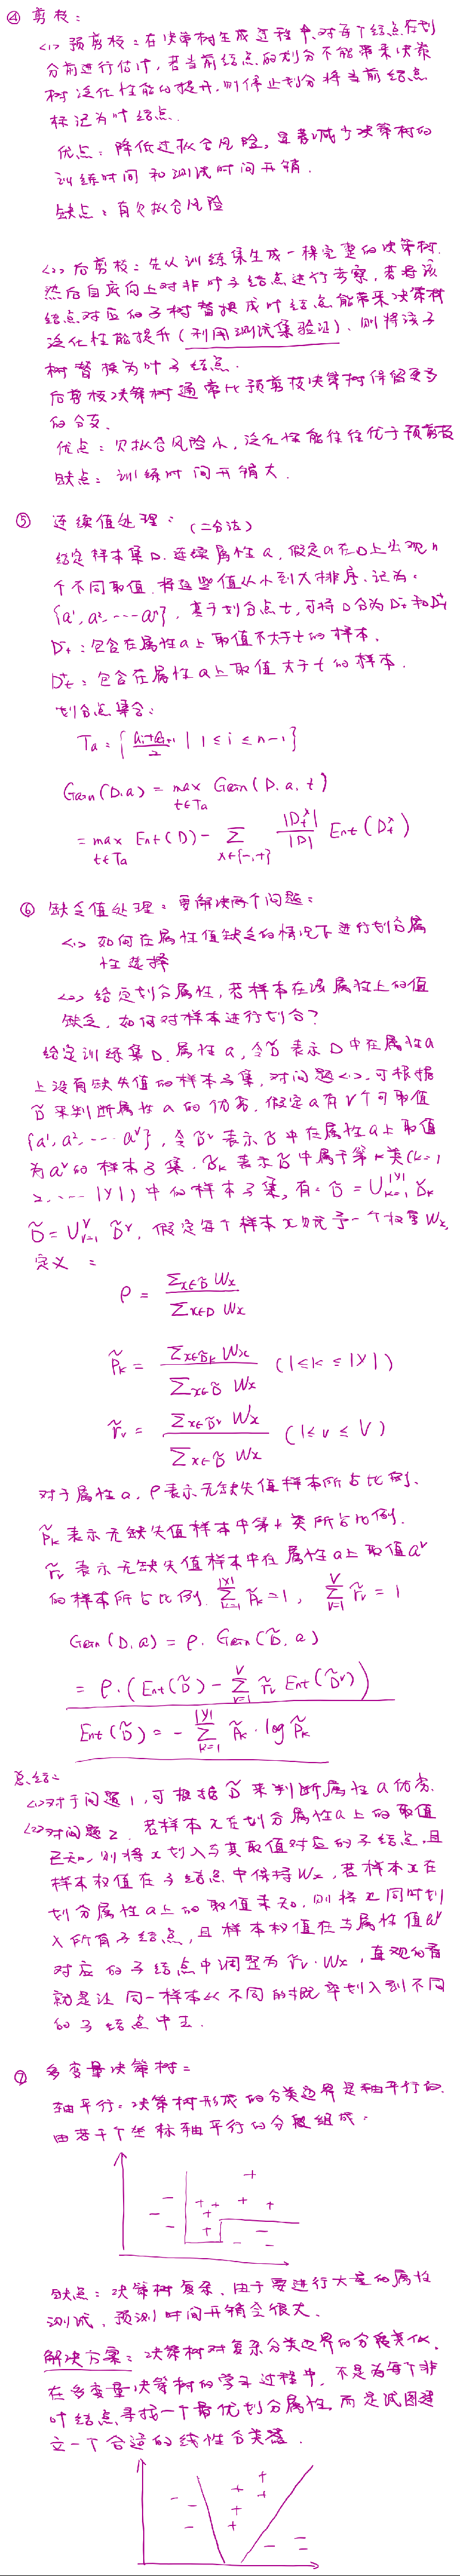 ④ 剪枝：
<1> 预剪枝：在决策树生成过程中，对每个结点在划
分前进行估计，若当前结点的划分不能带来决策
树泛化性能的提升，则停止划分将当前结点
标记为叶结点.
优点：降低过拟合风险，显著减少决策树的
训练时间和测试时间开销.
缺点：有欠拟合风险
<2> 后剪枝：先从训练集生成一棵完整的决策树.
然后自底向上对非叶子结点进行考察，若将该
结点对应的子树替换成叶结点能带来决策树
泛化性能提升(利用测试集验证)、则将该子
树替换为叶子结点.
后剪枝决策树通常比预剪枝决策树保留更多
的分支.
优点：欠拟合风险小，泛化性能往往优于预剪枝
缺点：训练时间开销大.
⑤ 连续值处理：(二分法)
给定样本集D.连续属性a，假定a在D上出现n
个不同取值.将这些值从小到大排序.记为：
{a¹, a², ... aⁿ}，基于划分点t，可将D分为Dt⁻和Dt⁺
Dt⁻：包含在属性a上取值不大于t的样本.
Dt⁺：包含在属性a上取值大于t的样本.
划分点集合：
Ta = { (ai+ai+1)/2 | 1≤i≤n-1 }
Gain(D.a) = max t∈Ta Gain(D.a,t)
= max t∈Ta Ent(D) - Σ λ∈{-,+} |Dt^λ|/|D| Ent(Dt^λ)
⑥ 缺失值处理：要解决两个问题：
<1> 如何在属性值缺失的情况下进行划分属
性选择
<2> 给定划分属性，若样本在该属性上的值
缺失，如何对样本进行划分？
给定训练集D.属性a，令D̃表示D中在属性a
上没有缺失值的样本子集，对问题<1>，可根据
D̃来判断属性a的优劣，假定a有V个可取值
{a¹, a², ... aᵛ}，令D̃ᵛ表示D̃中在属性a上取值
为aᵛ的样本子集.D̃k表示D̃中属于第k类(k=1,
2, ... |y|)中的样本子集，有：D̃ = ∪k=1^|y| D̃k
D̃ = ∪v=1^V D̃ᵛ，假定每个样本x赋予一个权重Wx,
定义：
ρ = Σx∈D̃ Wx / Σx∈D Wx
p̃k = Σx∈D̃k Wx / Σx∈D̃ Wx (1≤k≤|y|)
r̃v = Σx∈D̃ᵛ Wx / Σx∈D̃ Wx (1≤v≤V)
对于属性a，ρ表示无缺失值样本所占比例.
p̃k表示无缺失值样本中第k类所占比例.
r̃v表示无缺失值样本中在属性a上取值aᵛ
的样本所占比例. Σk=1^|y| p̃k=1, Σv=1^V r̃v=1
Gain(D,a) = ρ·Gain(D̃,a)
= ρ·(Ent(D̃) - Σv=1^V r̃v Ent(D̃ᵛ))
Ent(D̃) = - Σk=1^|y| p̃k·log p̃k
总结：
<1>对于问题1，可根据D̃来判断属性a优劣.
<2>对问题2.若样本x在划分属性a上的取值
已知，则将x划入与其取值对应的子结点，且
样本权值在子结点中保持Wx，若样本x在
划分属性a上的取值未知，则将x同时划
入所有子结点，且样本权值在与属性值aᵛ
对应的子结点中调整为r̃v·Wx，直观的看
就是让同一样本以不同的概率划入到不同
的子结点中去.
⑦ 多变量决策树：
轴平行：决策树形成的分类边界是轴平行的.
由若干个坐标轴平行的分段组成.
缺点：决策树复杂.由于要进行大量的属性
测试，预测时间开销会很大.
解决方案：决策树对复杂分类边界的分段类似.
在多变量决策树的学习过程中，不是为每个非
叶结点寻找一个最优划分属性，而是试图建
立一个合适的线性分类器.